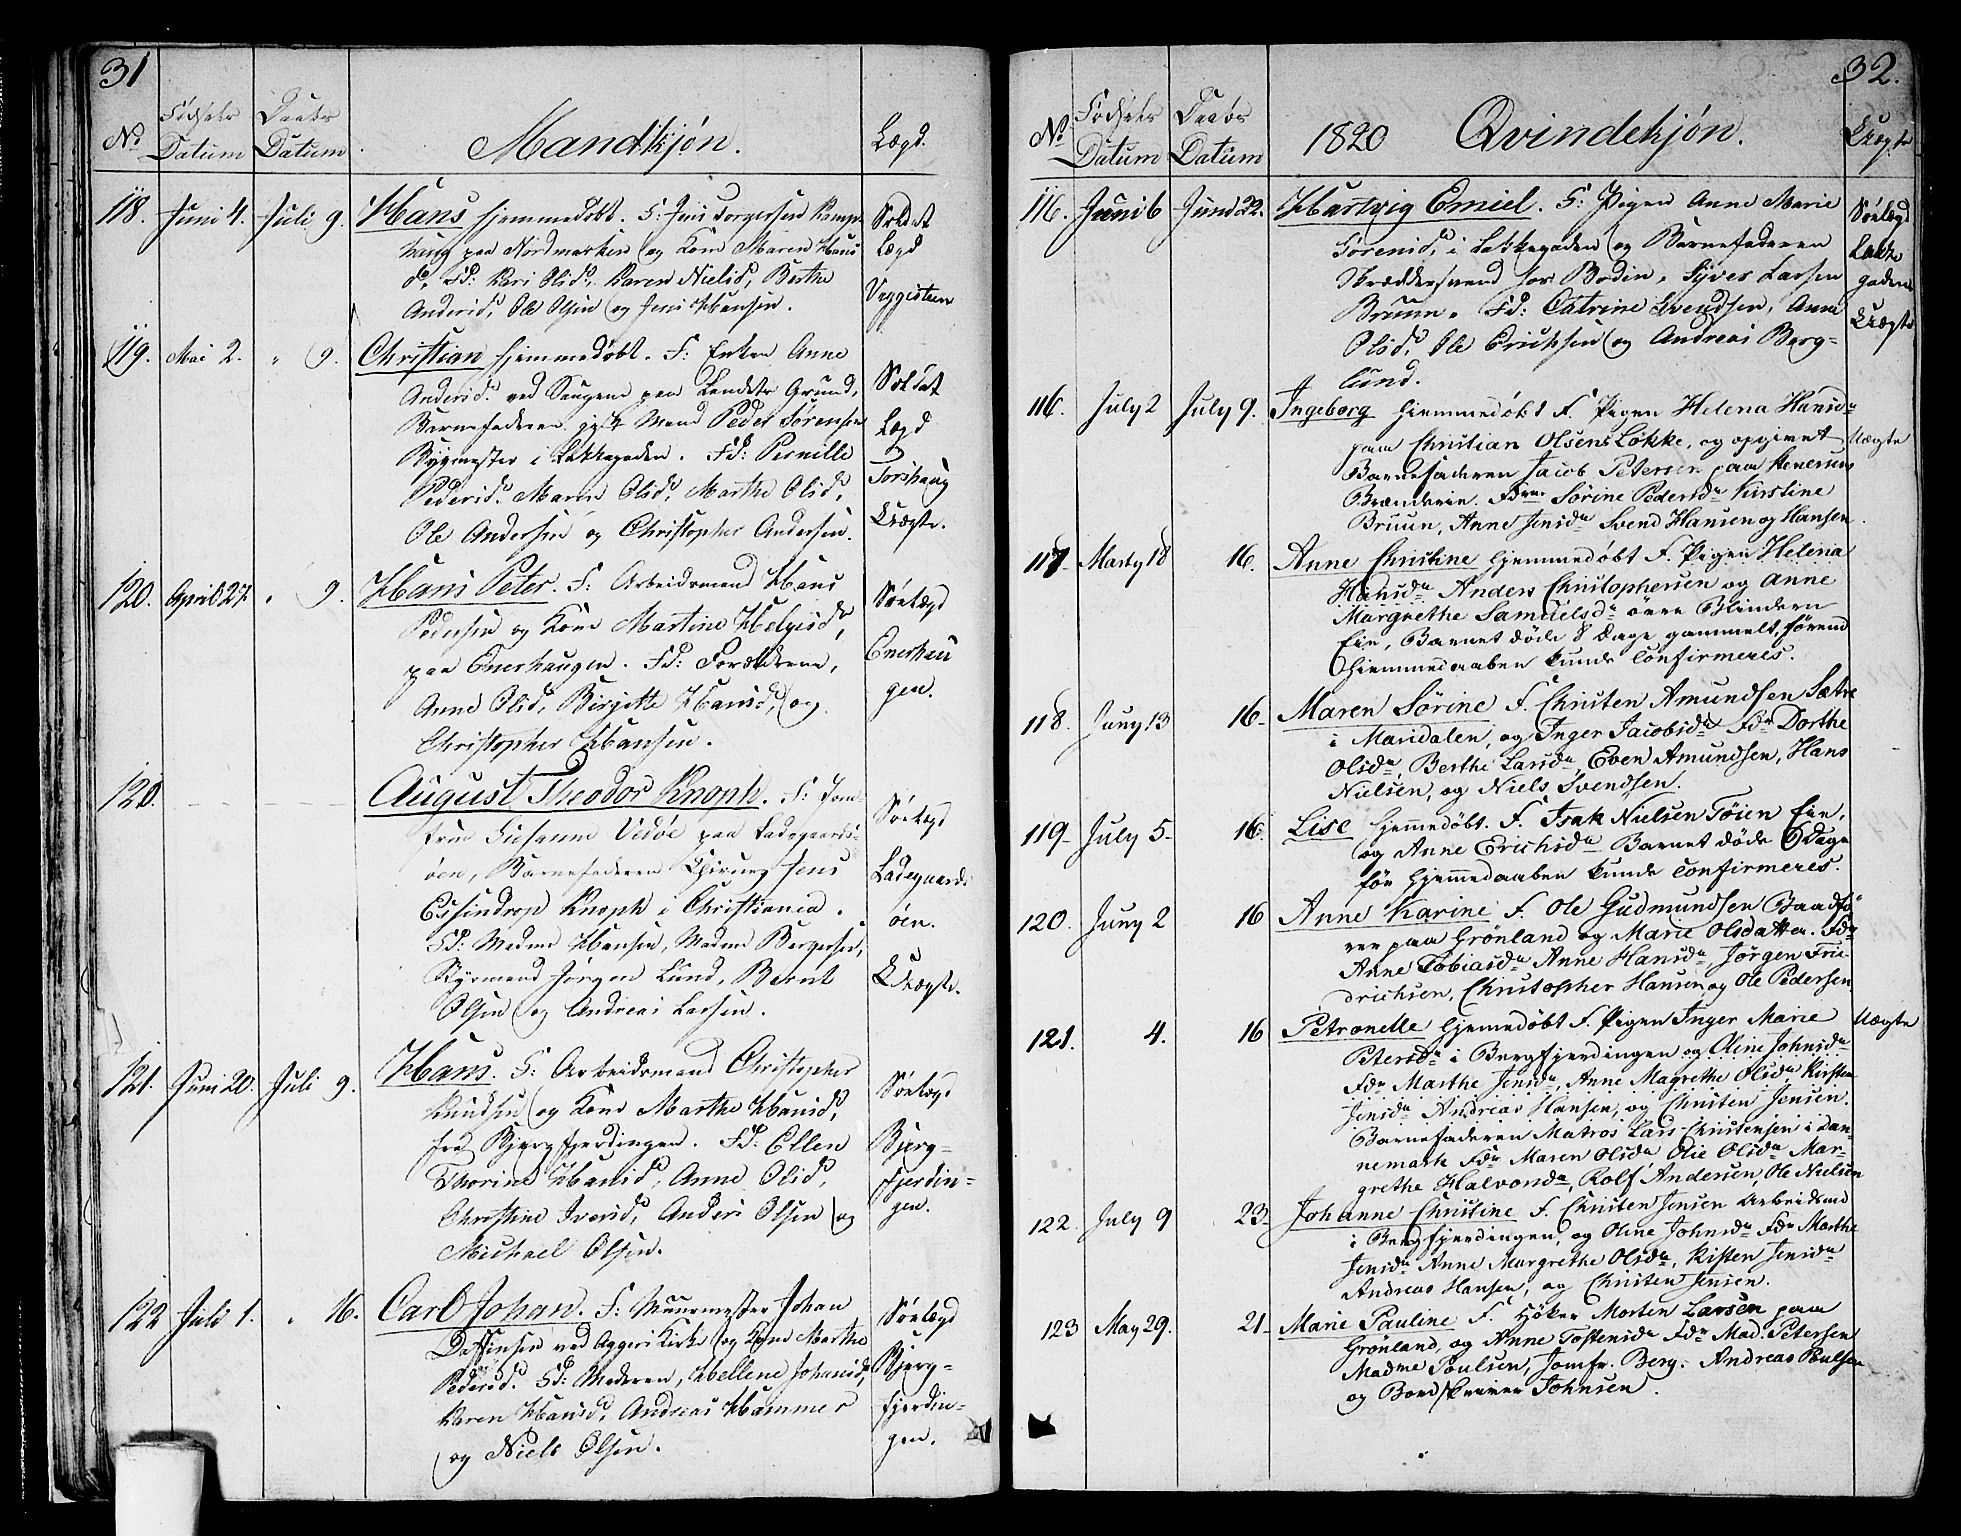 31
No
Fødsels Datum
Daabs Datum
Mandkjøn.
Lægd.
118. Juni 4. Juli 9. Hans hjemmedøbt. F: Jens Torgersen
paa Nordmarken og Kone Maren Hans
d. Fd: Kari Olsd. Karen Nielsd, Berthe
Andersd, Ole Olsen og Jens Hansen.
Soldat
Lægd
119. Mai 2. " 9. Christian hjemmedøbt. F: Enken Anne
Andersd. ved Saugene paa Landets Grund,
Barnefaderen gift Mand Peder Sørensen
Bygmester i Lakkegaden. Fd: Pernille
Pedersd. Maren Olsd, Marthe Olsd,
Ole Andersen og Christopher Andersen.
Soldat
Lægd
Torshaug
Uægte.
120. April 27. " 9. Hans Peter. F: Arbeidsmand Hans
Pedersen og Kone Martine Helgesd,
paa Enerhaugen. Fd: Forældrene,
Anne Olsd, Birgitte Hansd, og
Christopher Hansen.
Søelægd
Enerhau
gen.
120. August Theodor Knoph. F: Jom-
frue Susanne Vedøe paa Ladegaards-
øen, Barnefaderen Chirurg Jens
Essindrop Knoph i Christiania.
Fd: Madme Hansen, Madme Børgersen,
Styrmand Jørgen Lund, Bernt
Olsen og Andreas Larsen.
Søelægd
Ladegaards
øen.
Uægte.
121. Juni 20. Juli 9. Hans. F: Arbeidsmand Christopher
Knudsen og Kone Marthe Hansd,
fra Bjergfjerdingen. Fd: Ellen
Thorine Hansd, Anne Olsd,
Christine Iversd, Anders Olsen og
Michael Olsen.
Søelægd
Bjerg-
fjerdin-
gen.
122 Juli 1. " 16. Carl Johan. F: Muurmester Johan
ved Aggers Kirke og Kone Marthe
Pedersd. Fd: Moderen, Hellene Johansd,
Karen Hansd, Andreas Hammer
og Niels Olsen.
Søelægd
Bjerg-
fjerdin-
gen.
32.
No
Fødsels Datum
Daabs Datum
1820 Qvindekjøn.
Uægte
116. Juni 6 Juni 22. Hartvig Emiel. F: Pigen Anne Marie
i Lakkegaden og Barnefaderen
Skræddersvend hos Bodin, Syver Larsen
Bruun. Fd: Catrine Svendsen, Anne
Olsd, Ole Erichsen og Andreas Berg-
lund.
Søelægd
Lakke
gaden
Uægte
116. July 2 July 9. Ingeborg hjemmedøbt F. Pigen Helena Hansda
paa Christian Olsens Løkke, og opgivet
Barnefaderen Jacob Petersen paa
Brænderie. Fdrne Sørine Pedersda Kirstine
Bruun, Anne Jensda Svend Hansen og Hansen.
Uægte
117- Marty 18 16. Anne Christine hjemmedøbt F. Pigen Helena
Hansda Anders Christophersen og Anne
Margrethe Samuelsda øvre Blindern
Eie, Barnet døde 8 Dage gammelt, førend
Hjemmedaaben kunde confirmeres.
118. Juny 13 16- Maren Sørine F. Christen Amundsen Sætre
i Maridalen, og Inger Jacobsda Fdr Dorthe
Olsda, Berthe Larsda, Even Amundsen, Hans
Nielsen, og Niels Svendsen.
119- July 5- 16. Lise hjemmedøbt. F. Isak Nielsen Tøien Eie,
og Anne Erichsda Barnet døde 6 Dage
før Hjemmedaaben kunde confirmeres.
120. Juny 2 16 Anne Karine F. Ole Gudmundsen Baadfø
rer paa Grønland og Marie Olsdatter. Fdr
Anne Tobiasda Anne Hansda, Jørgen Frie-
drichsen, Christopher Hansen og Ole Pedersen.
121. 4. 16 Petronelle hjemmedøbt F. Pigen Inger Marie
Petersda i Bergfjerdingen og Oline Johnsda
Fdr Marthe Jensda, Anne Magrethe Olsda Kirsten
Jensda Andreas Hansen, og Christen Jensen.
Barnefaderen Matros Lars Christensen i Dan-
nemark Fdr Maren Olsda Olie Olsda Mar-
grethe Halvorsda, Rolf Andersen, Ole Nielsen
Uægte
122. July 9 23- Johanne Christine F. Christen Jensen Arbeidsmd
i Bergfjerdingen, og Oline Johnsda Fdr Marthe
Jensda Anne Margrethe Olsda, Kisten Jensda
Andreas Hansen, og Christen Jensen.
123 May 29. 21- Marie Pauline F. Høker Morten Larsen paa
Grønland, og Anne Tostensda Fdr Mad. Petersen
Madme Poulsen, Jomfr. Berg. Andreas Poulsen
og Bordskriver Johnsen.